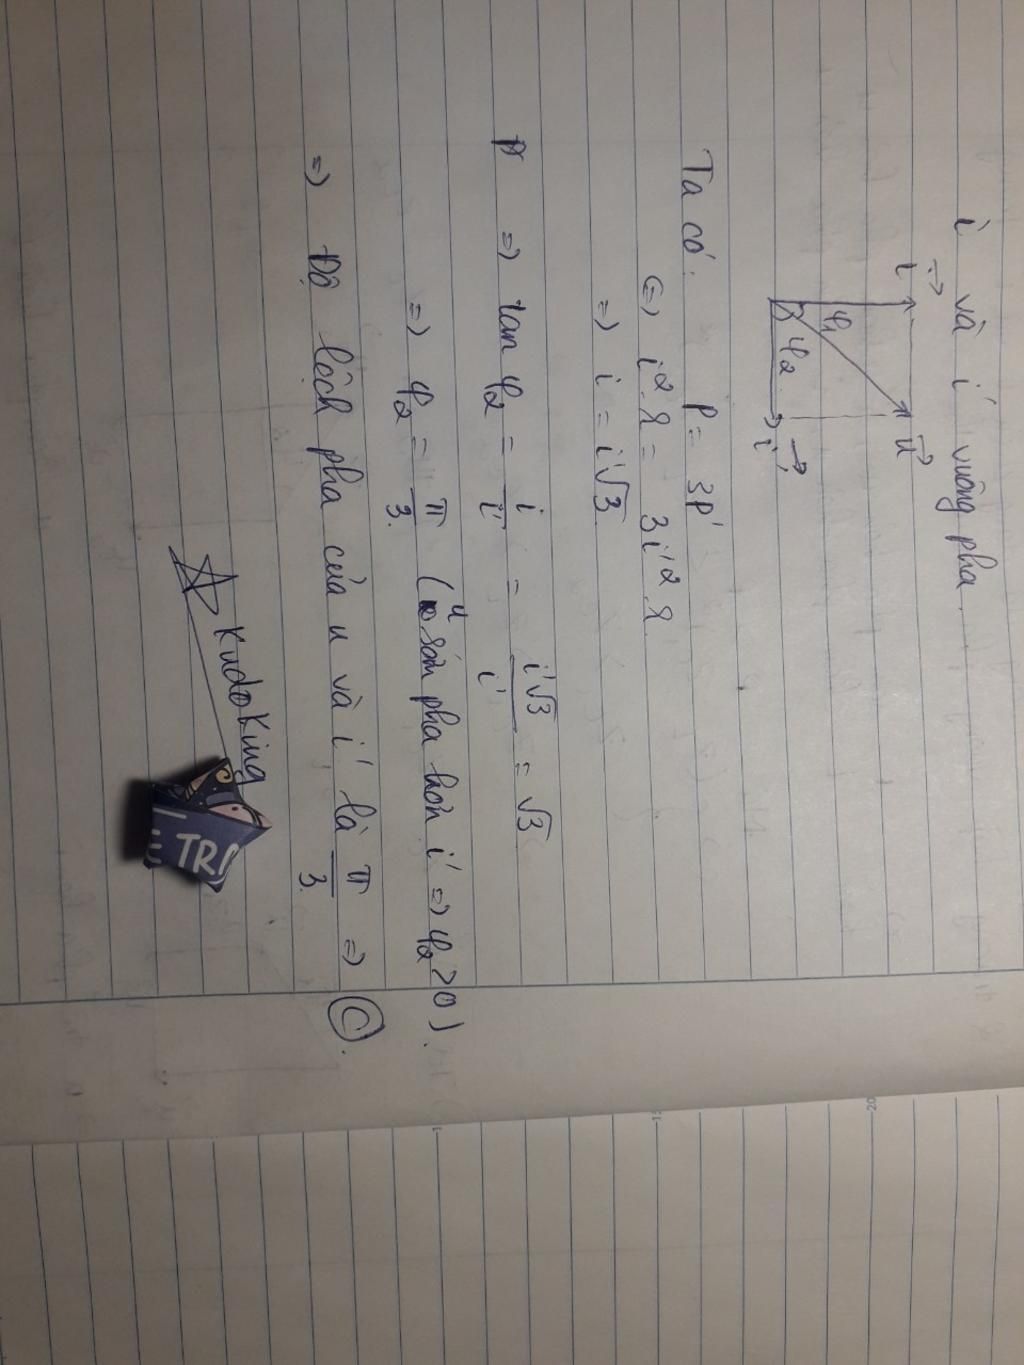 i và i' vuông pha.
i
u
φ₁
φ₂
i'
Ta có: P = 3P'
⇔ i².R = 3i'².R
⇒ i = i'√3
⇒ tan φ₂ = i/i' = i'√3/i' = √3
⇒ φ₂ = π/3. (u sớm pha hơn i' ⇒ φ₂ > 0).
⇒ Độ lệch pha của u và i' là π/3. ⇒ C.
KudoKing
TR
20
15